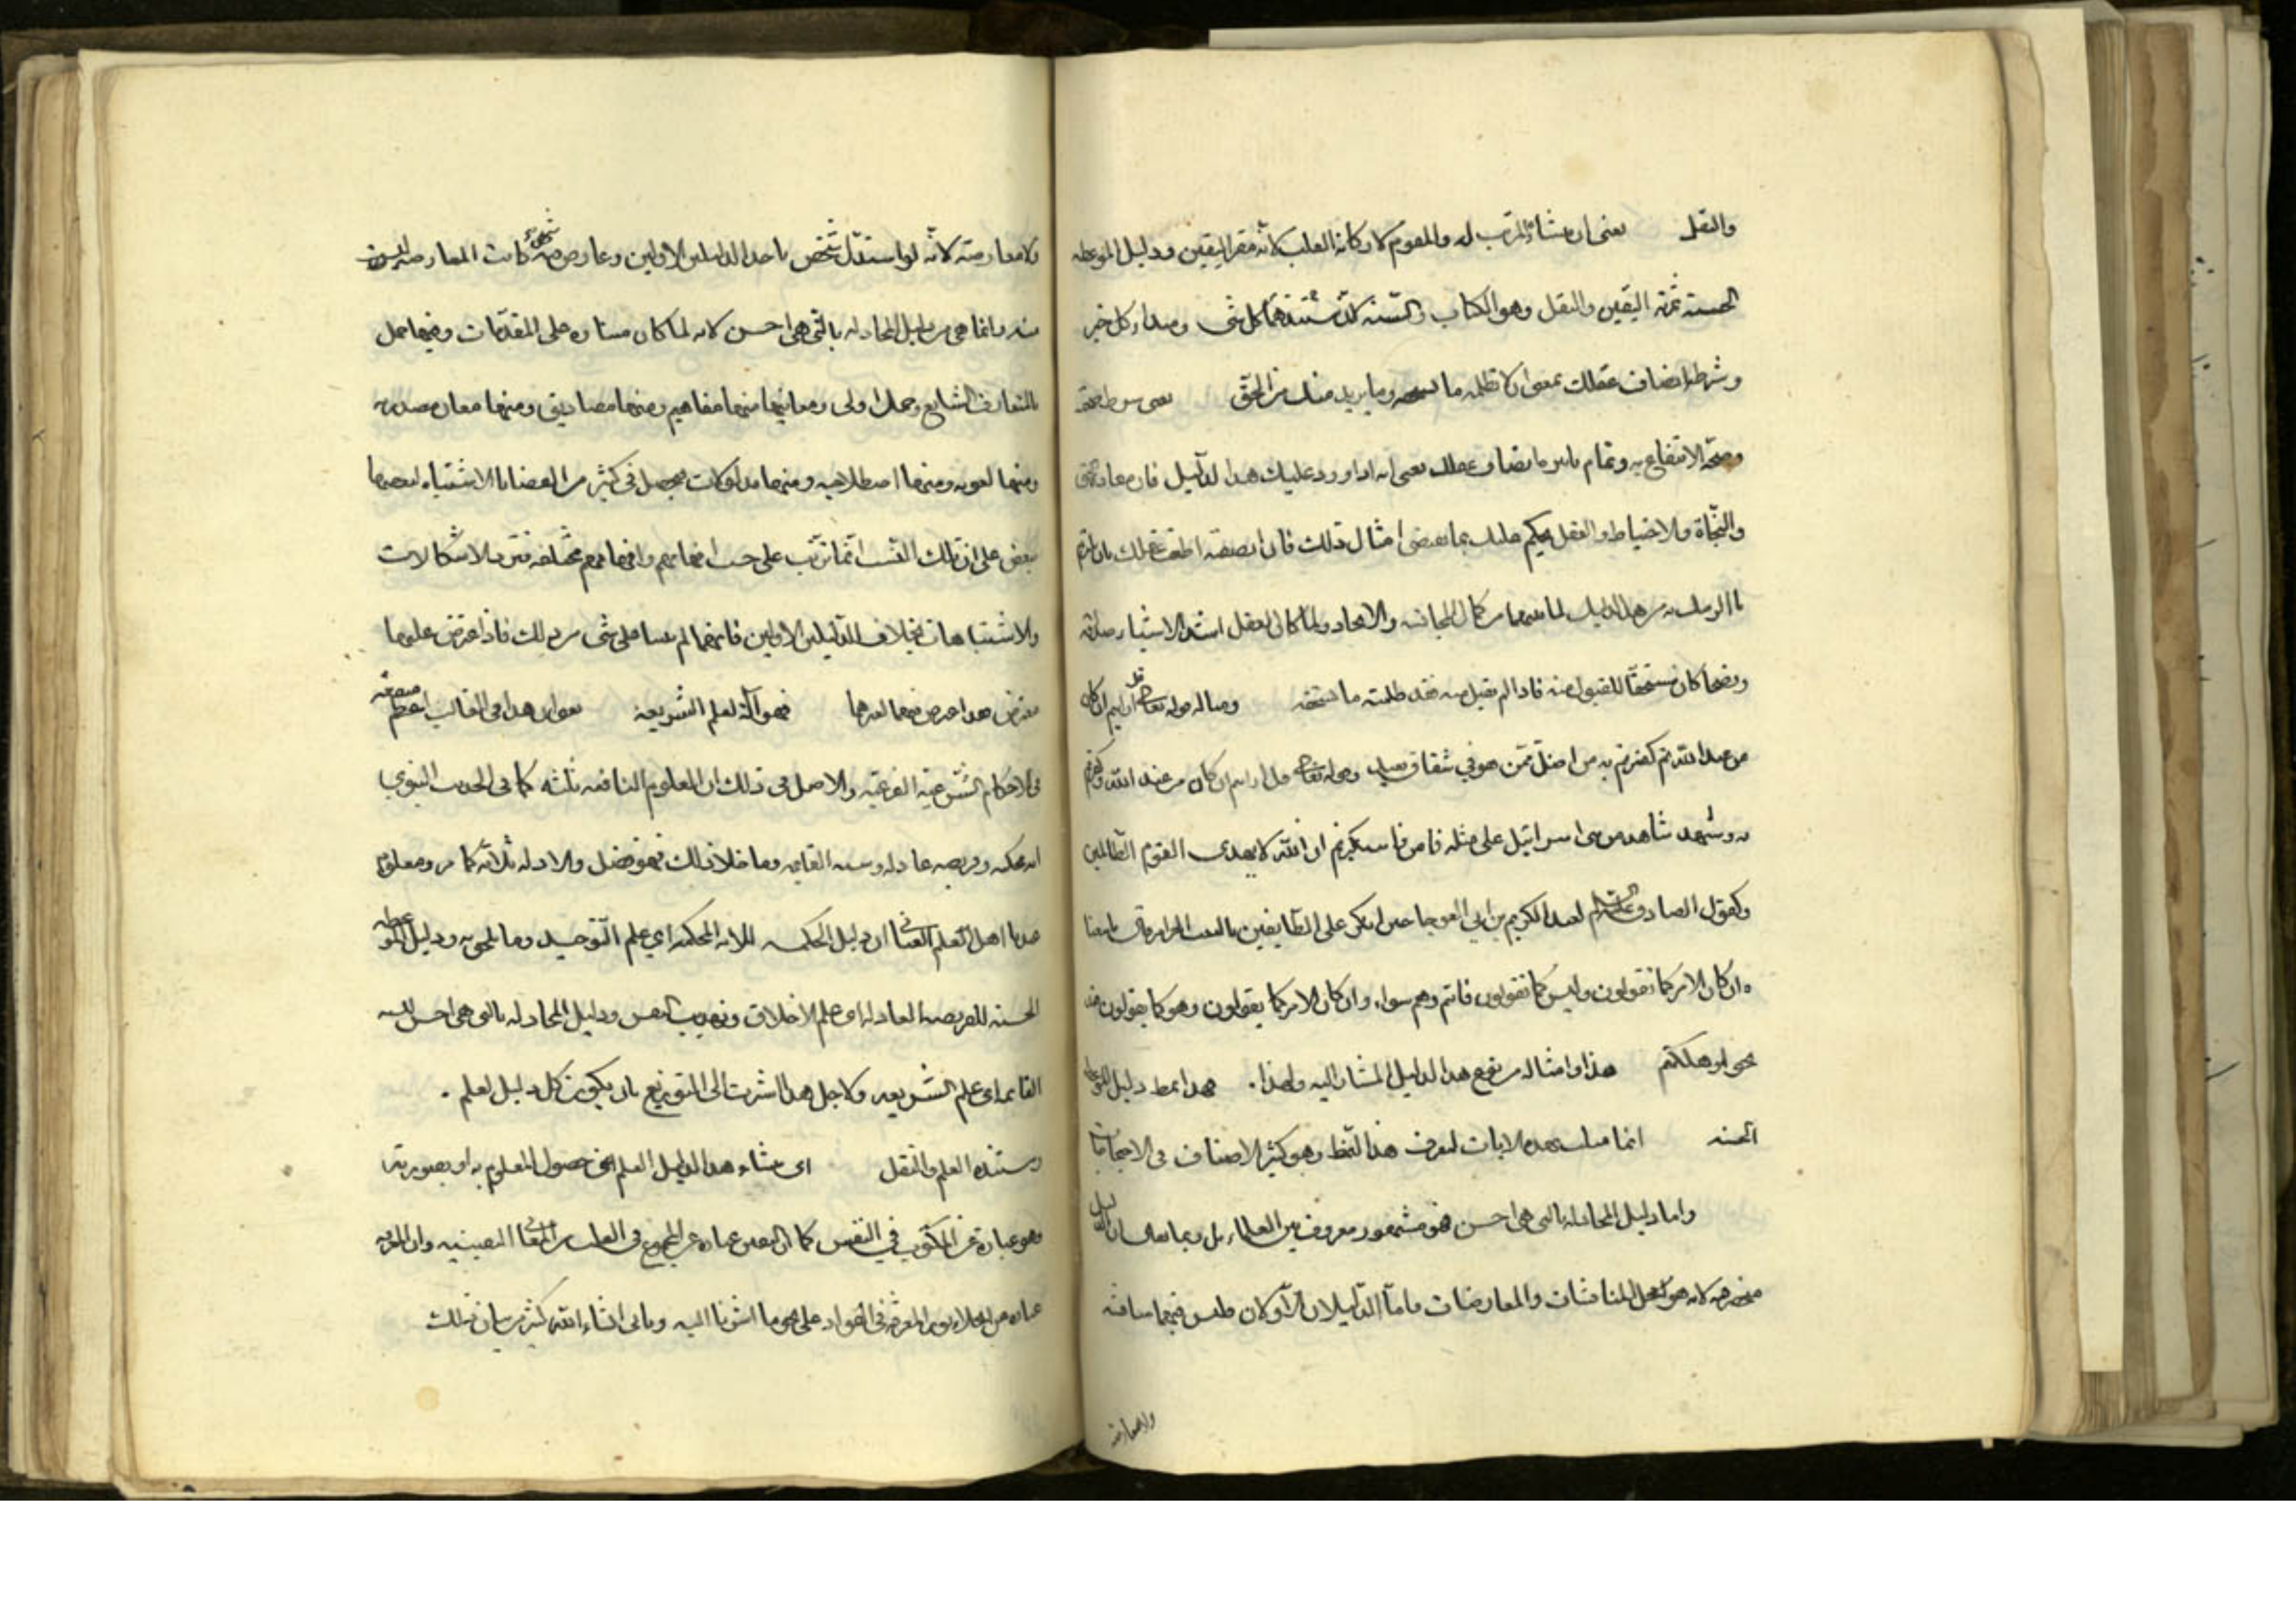 والنقل يعنى ان منشاء المرتب له والمقوم لاركانه القلب لانه مقر اليقين ودليل الموعظة
الحسنة ثمرته اليقين والنقل وهو الكتاب والسنة لان مستندهما كل شى ومبداء كل خير
وشرطه انصاف عقلك بمعنى ان لا تظلمه ما يستحقه وما يريد منك من الحق يعنى شرط صحته
وصحة الانتفاع به وتمام تاثيره انصاف عقلك يعنى انه اذا ورد عليك هذا الدليل فان
والنجاة والاحتياط والعقل يحكم عليك بما يقتضى امثال ذلك فان انصفته اطعت عقلك بان
هذا الدليل لما بينهما من كمال المجانسة والاتحاد ولما كان العقل اشد
كان مستحقا للقبول منه فاذا لم تقبل منه فقد ظلمته ما يستحقه ومثاله قوله تعالى قل ارايتم ان كان
من عند الله ثم كفرتم به من اضل ممن هو في شقاق بعيد وقوله تعالى قل ارايتم ان كان من عند الله وكفرتم
به وشهد شاهد من بنى اسرائيل على مثله فامن واستكبرتم ان الله لا يهدى القوم الظالمين
وكقول الصادق عليه السلام لعبد الكريم بن ابى العوجا حين انكر على الطايفين بالبيت الحرام
ان كان الامر كما تقولون وليس كما تقولون فانتم وهم سواء وان كان الامر كما يقولون وهو كما يقولون فقد
نجوا وهلكتم هذا وامثاله من نوع هذا الدليل المشار اليه ولهذا . فهذا نمط دليل الموعظة
الحسنة انما مثلت بهذه الايات لتعرف هذا النمط وهو كثير الاصناف فى الاحتجاجات
واما دليل المجادلة بالتى هى احسن فهو مشهور معروف بين العلماء بل ربما يقال ان الدليل
منحصر فيه لانه هو محل المناقشات والمعارضات واما الدليلان الاولان فليس فيهما مناقشة
ولا معارضة
ولا معارضة لانه لو استقل شخص باحد الدليلين الاولين وعارض فيه شخص كانت المعارضة ليست
منه وانما هى من دليل المجادلة بالتى هى احسن لانه لما كان مبناه على المقدمات وفيها حمل
بالمتعارف الشايع وحمل اولى ومعانيها منها مفاهيم ومنها مصاديق ومنها معان مصدرية
ومنها لغوية ومنها اصطلاحية ومنها مدلولات يحصل فى كثير من القضايا الاشتباه لبعضها
ببعض على ان تلك النسب انما ترتب على حسب افهامهم وافهامهم مختلفة فترد الاشكالات
والاشتباهات بخلاف الدليلين الاولين فانهما لم يبنيا على شى من ذلك فاذا اعترض عليهما
معترض هذا اعترض فيهما لغيرهما فهو آلة لعلم الشريعة يعنى ان هذا فى الغالب اعظم منفعته
فى الاحكام الشرعية الفرعية والاصل فى ذلك ان العلوم النافعة ثلثة كما فى الحديث النبوي
اية محكمة وفريضة عادلة وسنة القايمة وما خلا ذلك فهو فضل والادلة ثلاثة كما مر ومعلوم
ان دليل الحكمة للاية المحكمة اى علم التوحيد وما يلحق به ودليل الموعظة
الحسنة للفريضة العادلة اى علم الاخلاق وتهذيب النفس ودليل المجادلة بالتى هى احسن للسنة
القايمة اى علم الشريعة ولاجل هذا اشرت الى التوزيع بان يكون كل دليل لعلم .
ومستنده العلم والنقل اى منشاء هذا الدليل العلم اعنى حصول المعلوم به او بصورته
وهو عبارة عن المكتوب في النفس كما ان اليقين عبارة عن المجموع فى القلب من المعانى اليقينية وان المعرفة
على نحو ما اشرنا اليه وياتى انشاء الله كثير بيان ذلك